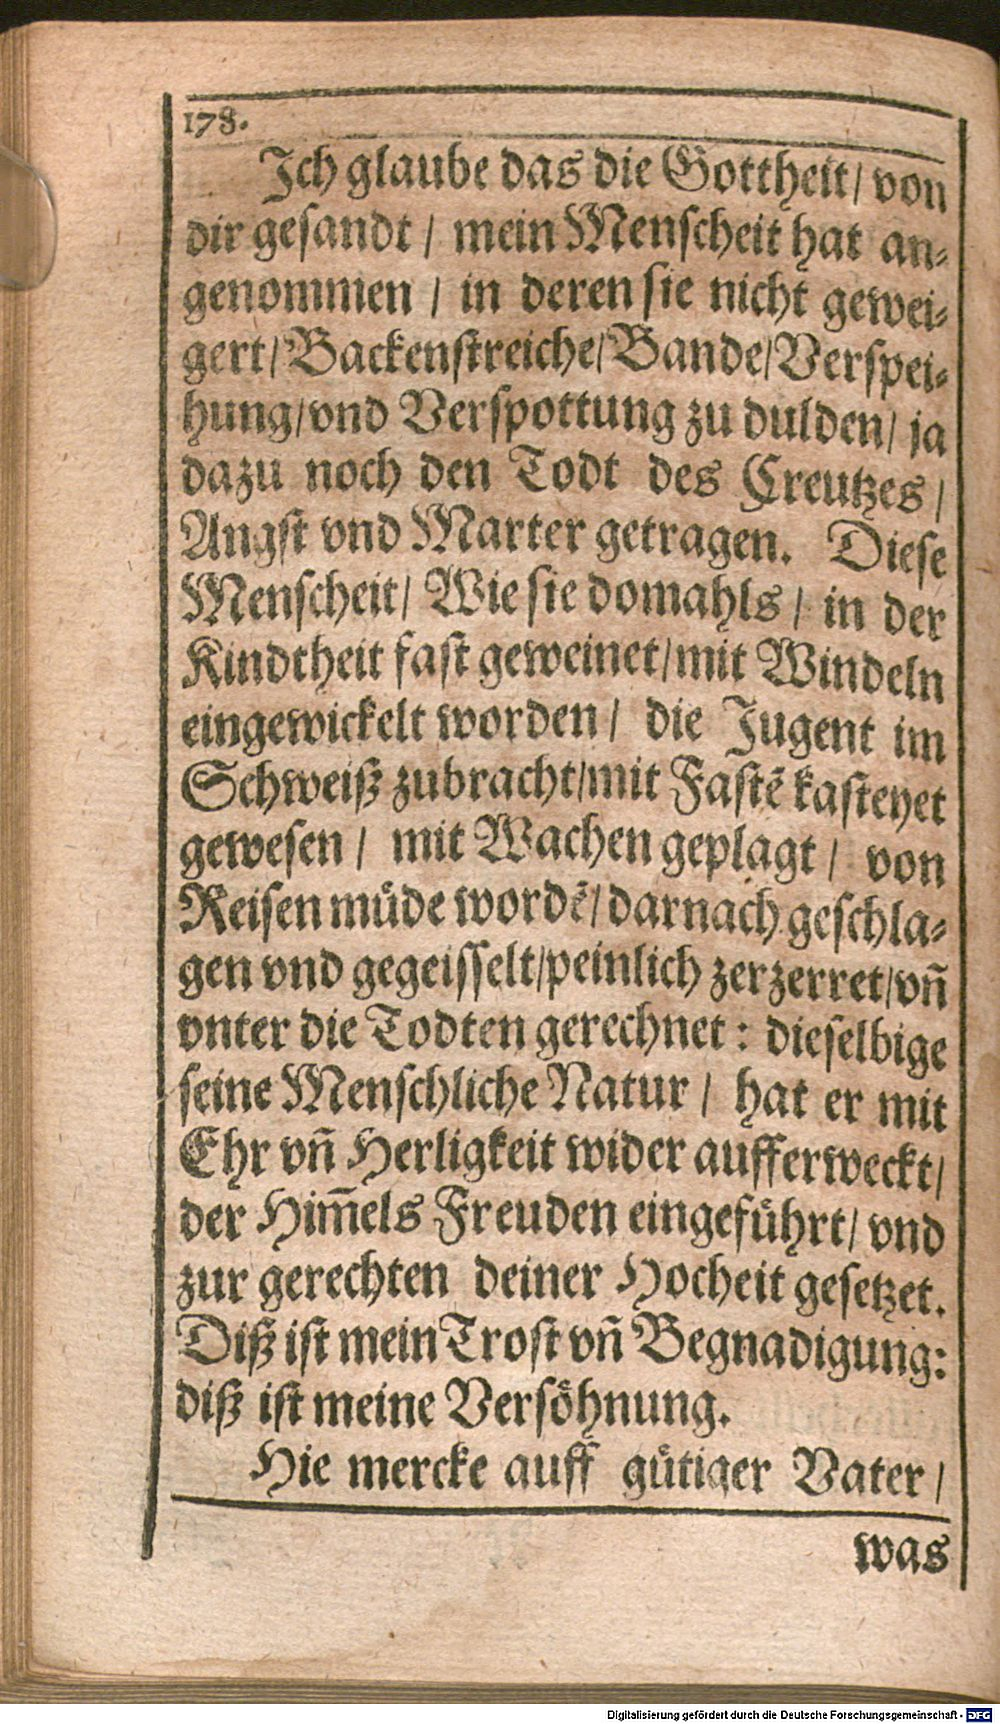 178.
Ich glaube das die Gottheit/ von
dir gesandt / mein Menscheit hat an-
genommen / in deren sie nicht gewei-
gert/ Backenstreiche/ Bande/ Verspei-
hung/ vnd Verspottung zu dulden/ ja
dazu noch den Todt des Creutzes /
Angst vnd Marter getragen. Diese
Menscheit/ Wie sie domahls / in der
Kindtheit fast geweinet/ mit Windeln
eingewickelt worden / die Jugent im
Schweiß zubracht/ mit Fastẽ kasteyet
gewesen / mit Wachen geplagt / von
Reisen müde wordẽ/ darnach geschla-
gen vnd gegeisselt/ peinlich zerzerret/ vñ
vnter die Todten gerechnet : dieselbige
seine Menschliche Natur / hat er mit
Ehr vñ Herligkeit wider aufferweckt/
der Him̃els Freuden eingeführt/ vnd
zur gerechten deiner Hocheit gesetzet.
Diß ist mein Trost vñ Begnadigung:
diß ist meine Versöhnung.
Hie mercke auff gütiger Vater /
was
Digitalisierung gefördert durch die Deutsche Forschungsgemeinschaft - DFG